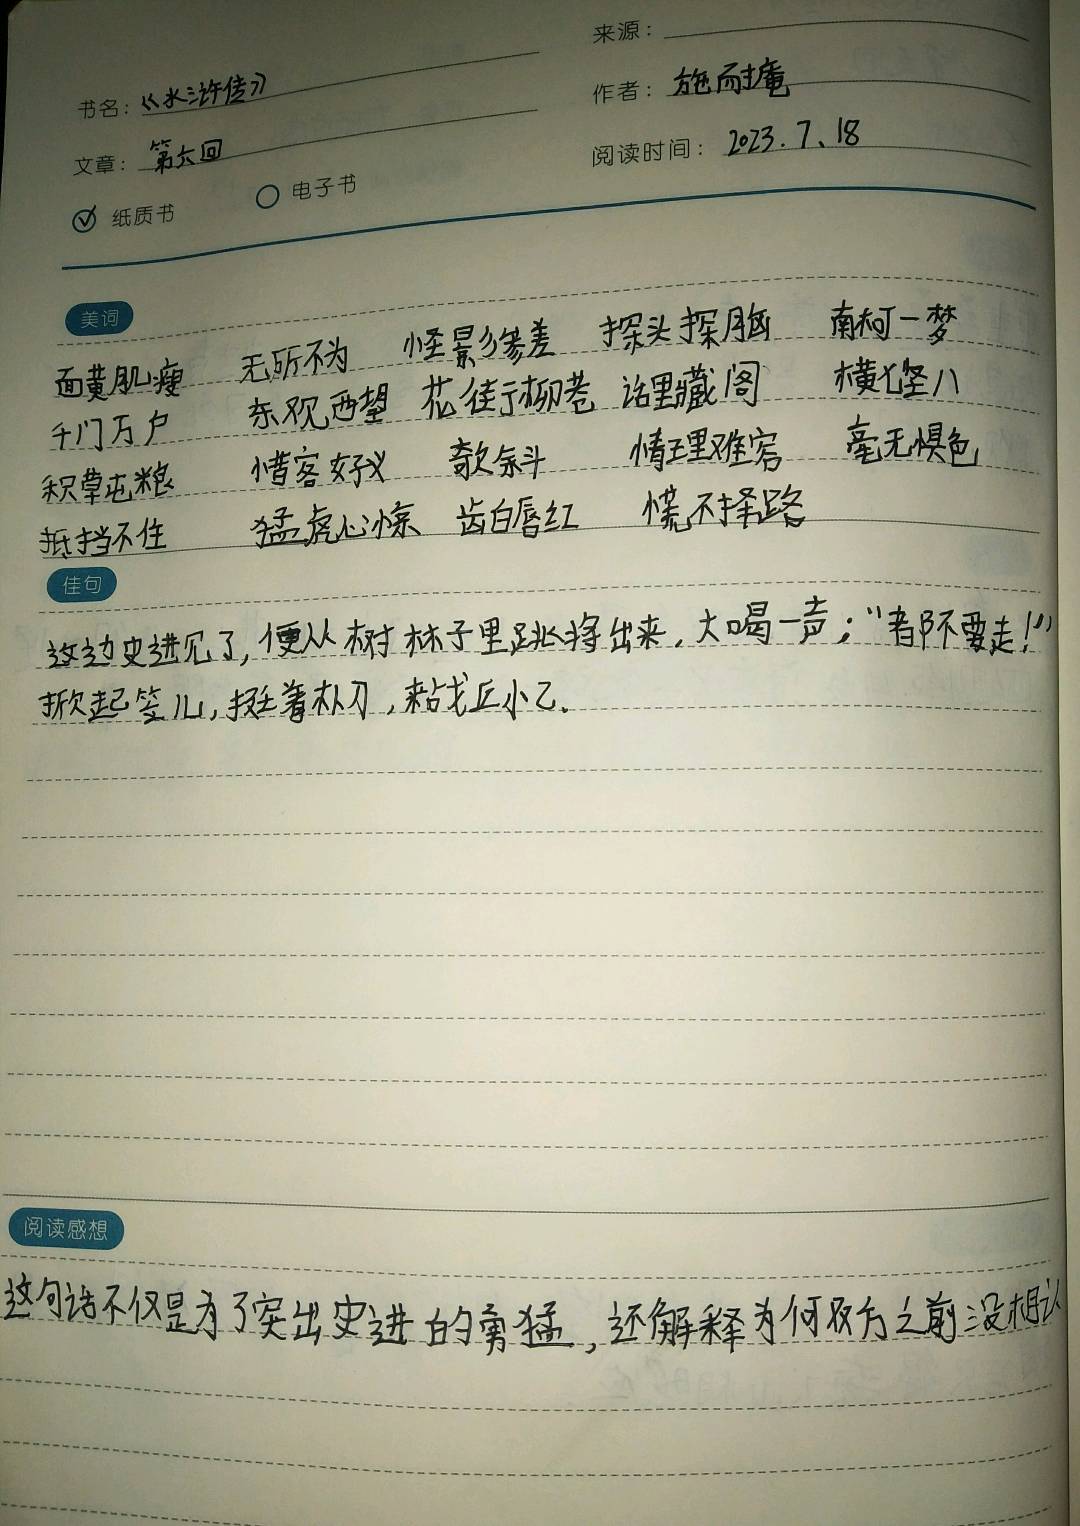 来源：
书名：《水浒传》
作者：施耐庵
文章：第六回
阅读时间：2023.7、18
纸质书 电子书
美词
面黄肌瘦 无所不为 怪影参差 探头探脑 南柯一梦
千门万户 东观西望 花街柳巷 话里藏阄 横七竖八
积草屯粮 惜客好义 欹余斗 情理难容 毫无惧色
抵挡不住 猛虎心惊 齿白唇红 慌不择路
佳句
这边史进见了，便从树林子里跳将出来，大喝一声；“都不要走！”
掀起笠儿，挺着朴刀，来战丘小乙.
阅读感想
这句话不仅是为了突出史进的勇猛，还解释为何双方之前没相认